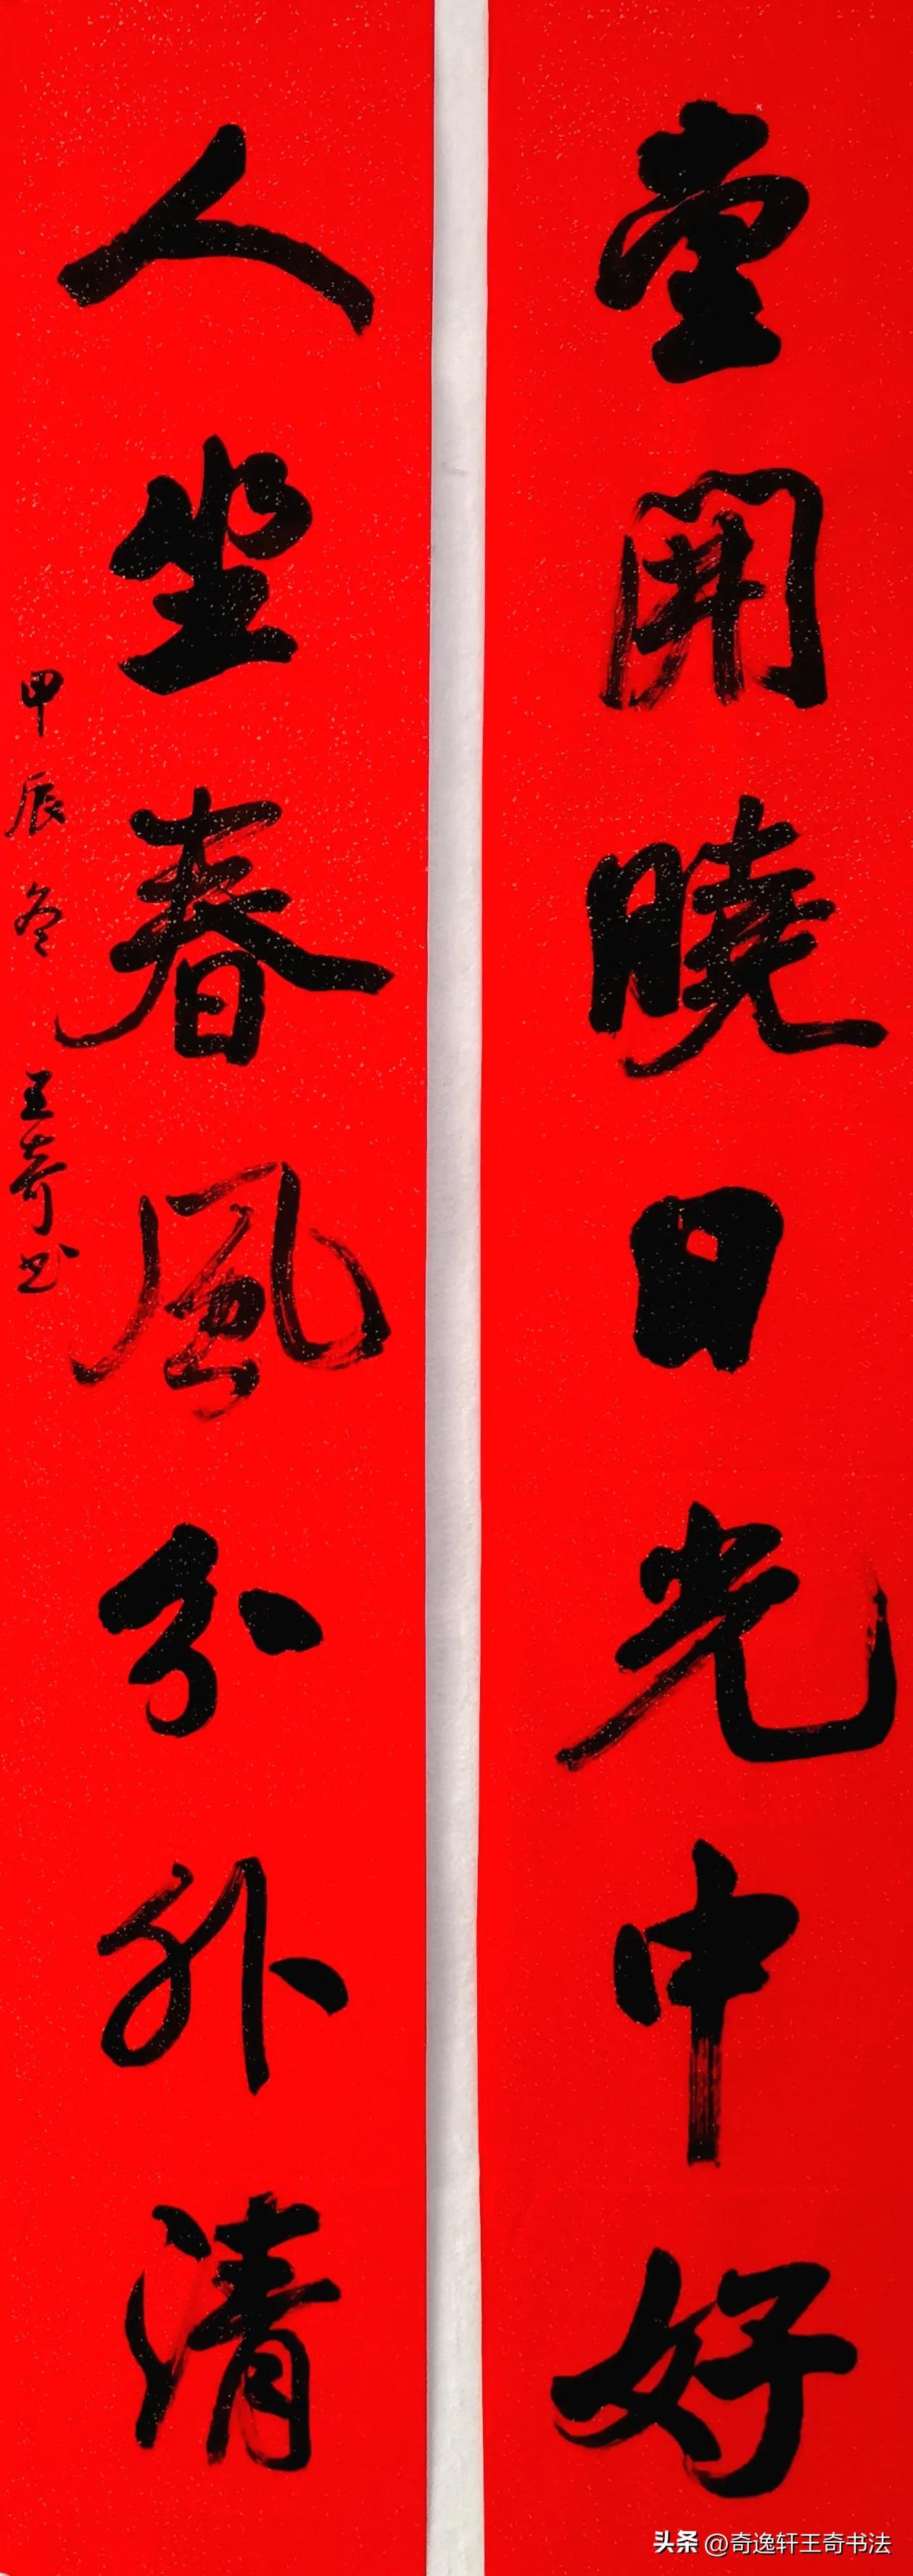 堂開曉日光中好
人坐春風分外清
甲辰冬王奇书
头条 @奇逸轩王奇书法